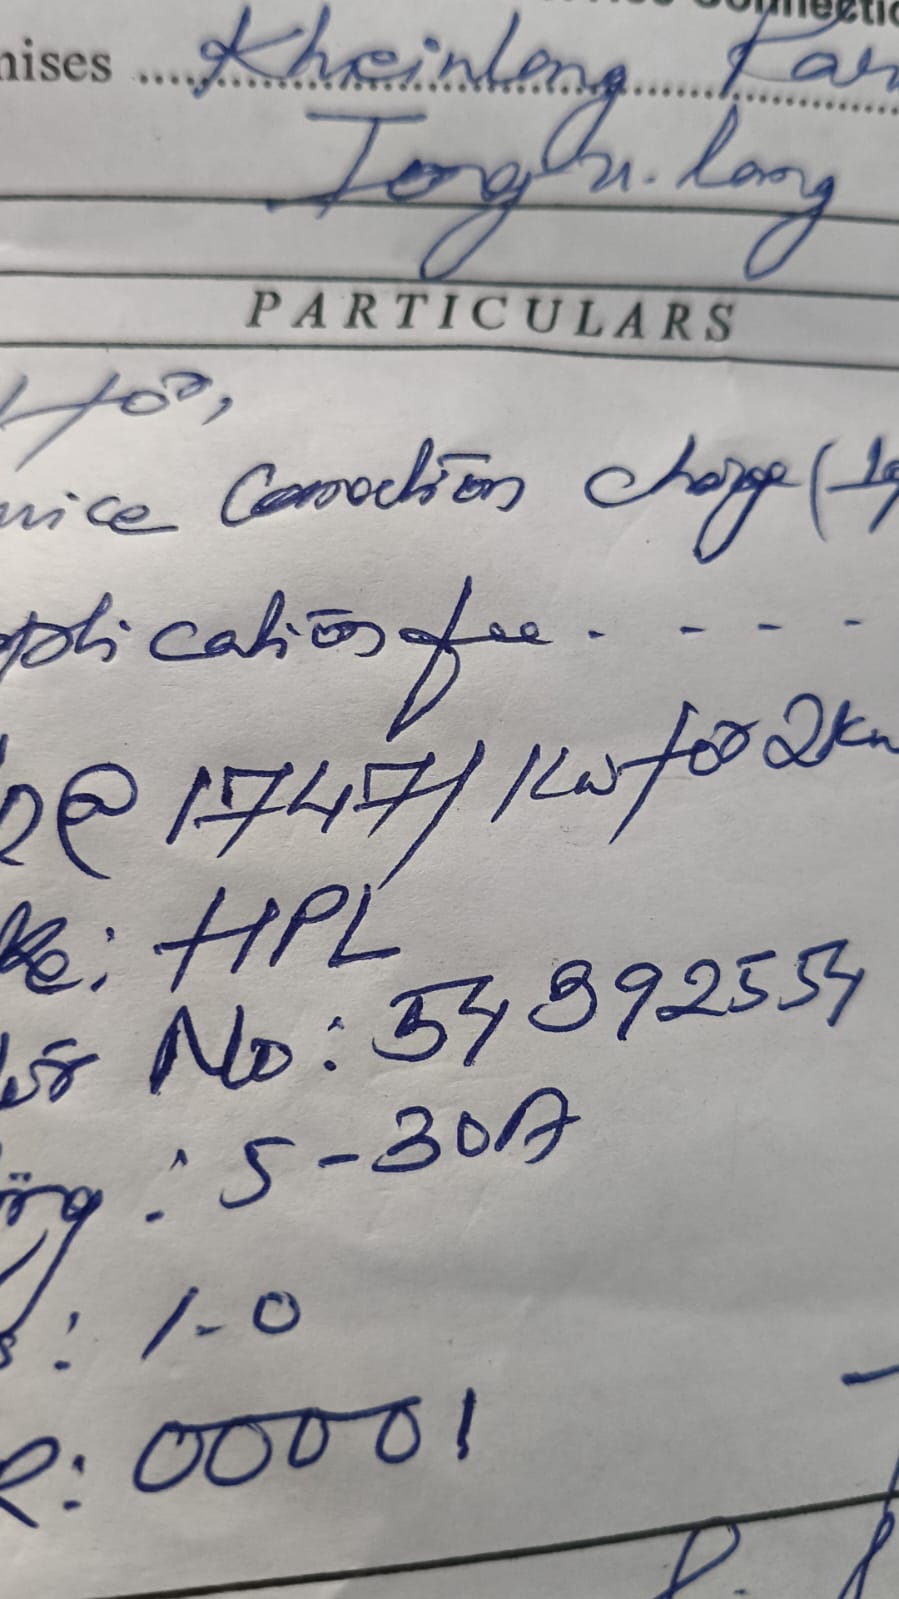 Connectio
mises Kheinlong Par
Tongh. long
PARTICULARS
For,
rvice Connection charge (1φ
pplication fee . - - - -
D@ 1747/ Kw for 2Kw
ke: HPL
No: 54892554
ing : 5-30A
s: 1-0
R: 00001